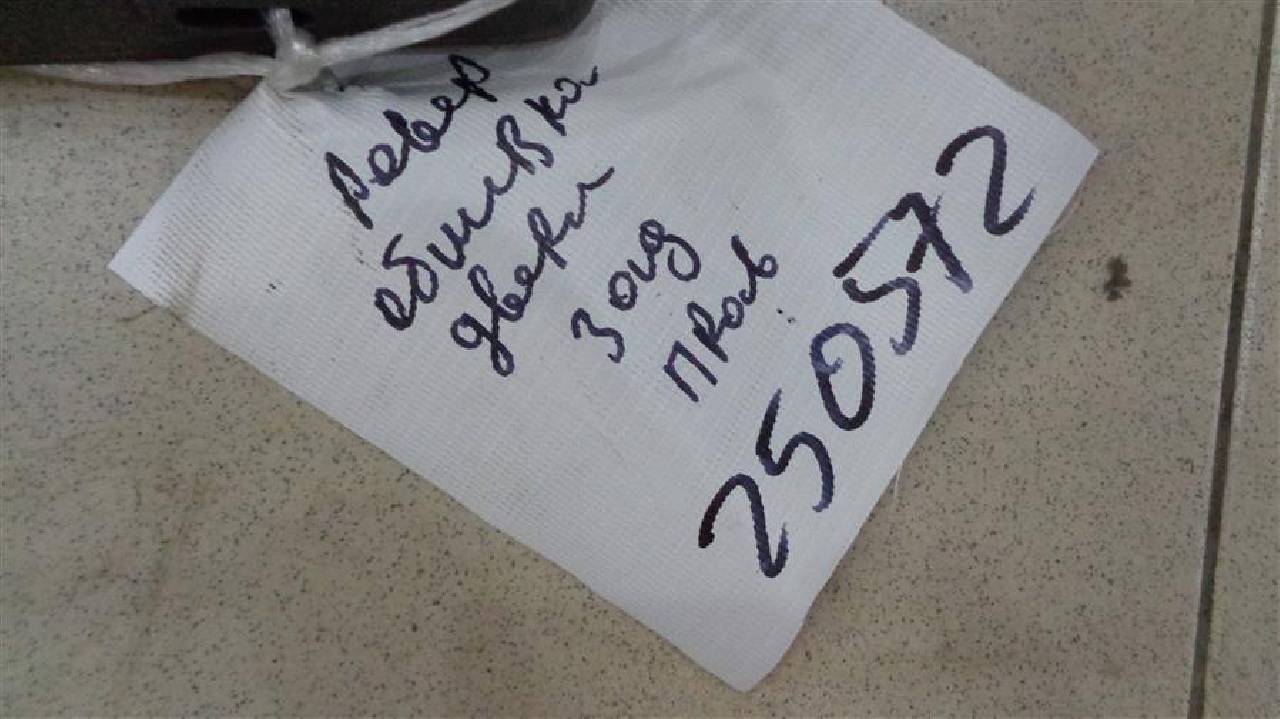 Ровер
обшивка
двери
зад
прав
250572